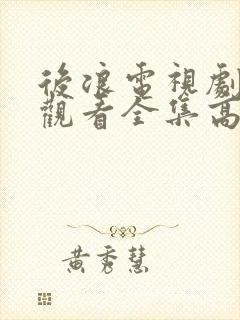 後浪電視劇
觀看全集高
黃秀慧